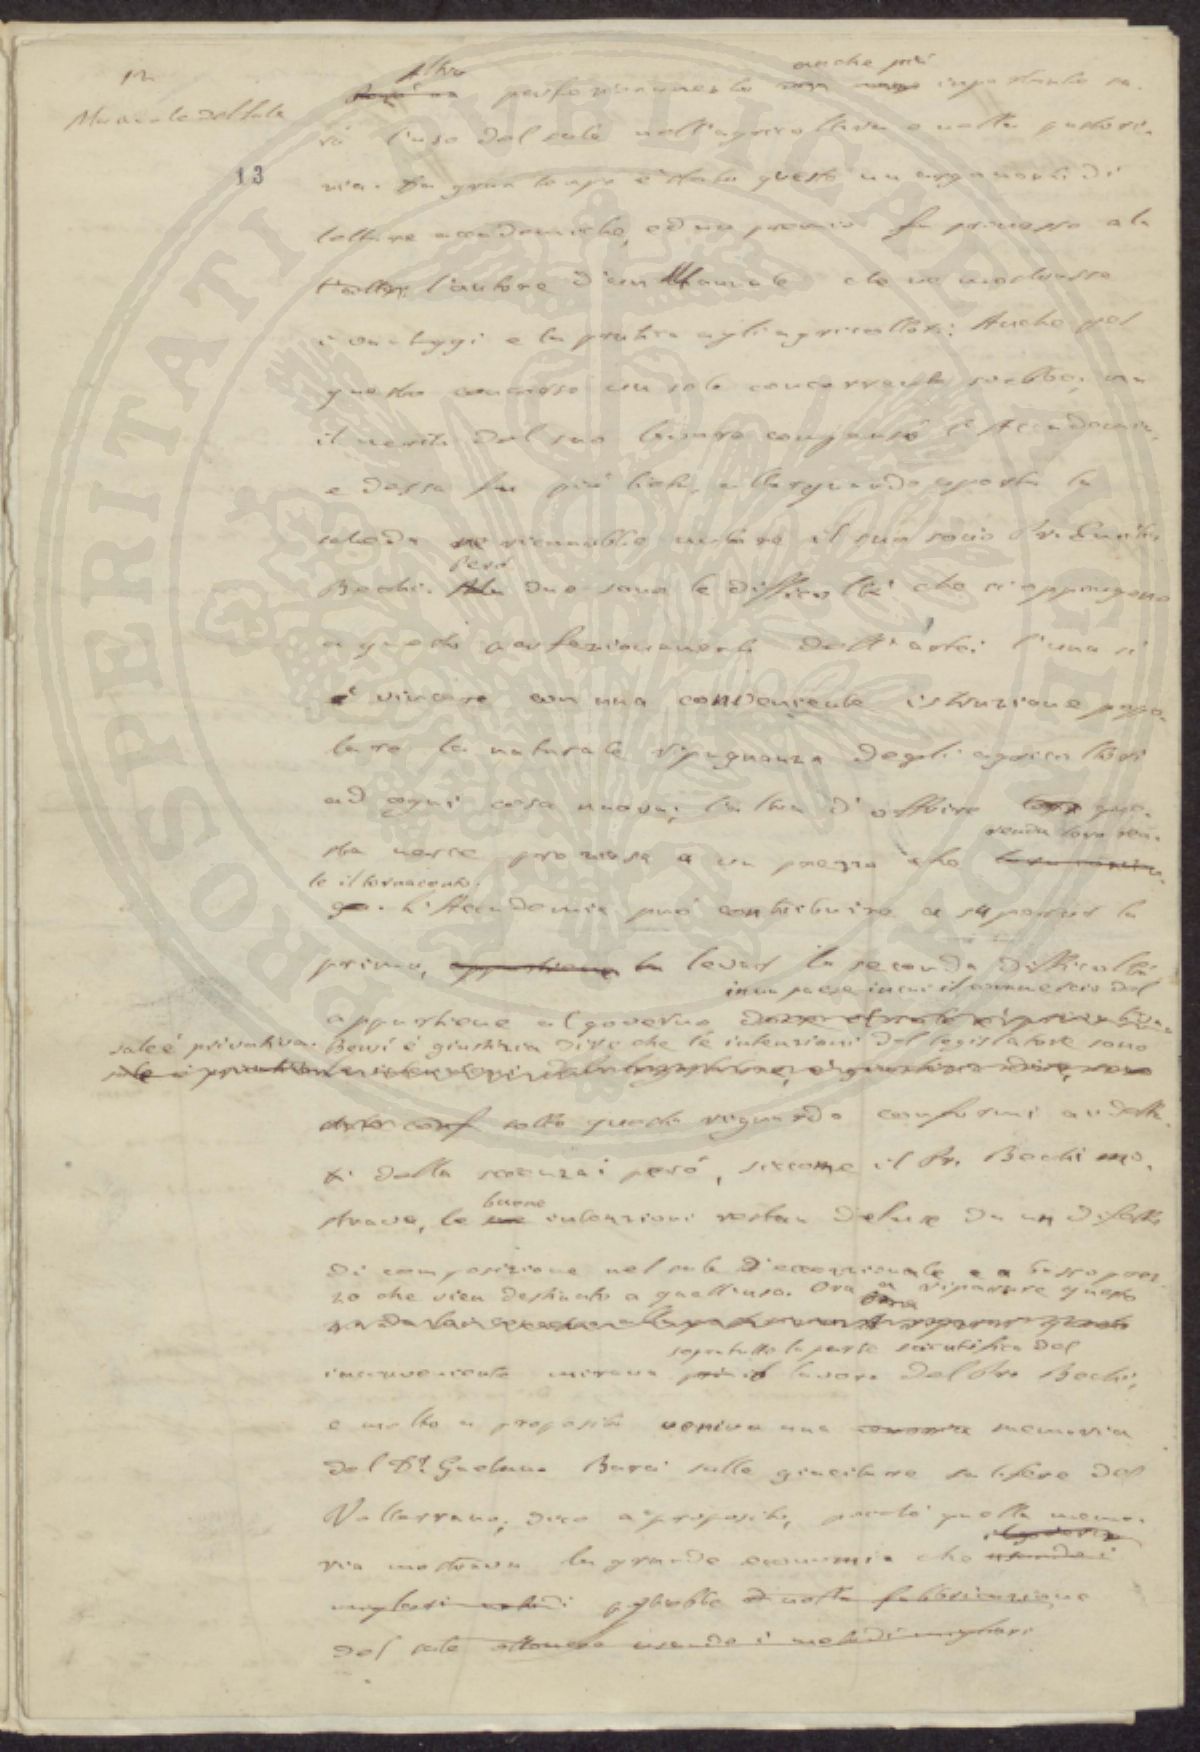 12
Manuale del sale
13
altro anche più
perfezionamento importante sa-
rà l'uso del sale nell'agricoltura e nella pastori-
zia. Da gran tempo è stato questo un argomento di
letture accademiche, ed un premio fu promesso al
l'autore d'un Manuale che ne mostrasse
i vantaggi e la pratica agli agricoltori. Anche pel
questo concorso un solo concorrente sarebbe, ma
il merito del suo lavoro compensò l'Accademia,
e dessa fu più lieta, allorquando aperta la
scheda ne rinvenibile il suo socio Pr. Emilio
però
Bechi. Ma due sono le difficoltà che si oppongono
a questi perfezionamenti dell'arte: l'una si
è vincere con una conveniente istruzione popo-
lare la naturale ripugnanza degli agricoltori
ad ogni cosa nuova; l'altra d'offrire loro que-
renda loro sen-
sta merce preziosa a un prezzo che
te il tornaconto.
L'Accademia può contribuire a superar la
prima, appartiene la levar la seconda difficoltà
in un paese in cui il commercio del
appartiene al governo
sale è privativa. Bensì è giustizia dire che le intenzioni del legislatore sono
sotto questo riguardo conformi ai detta-
ti della scienza; però, siccome il Pr. Bechi mo-
buone
strava, le sue intenzioni restan deluse da un difetto
di composizione nel sale d'eccezionale e a basso prez-
zo che vien destinato a quell'uso. Ora a riparare questo
soprattutto la parte scientifica del
inconveniente mirava lavoro del Pr. Bechi,
e molto a proposito veniva una memoria
del Dr. Gaetano Barzi sulle giaciture salifere del
Volterrano; dico a proposito, perché quella memo-
il governo
ria mostrava la grande economia che usando i
migliori metodi potrebbe nella fabbricazione
del sale ottenere usando i metodi migliori